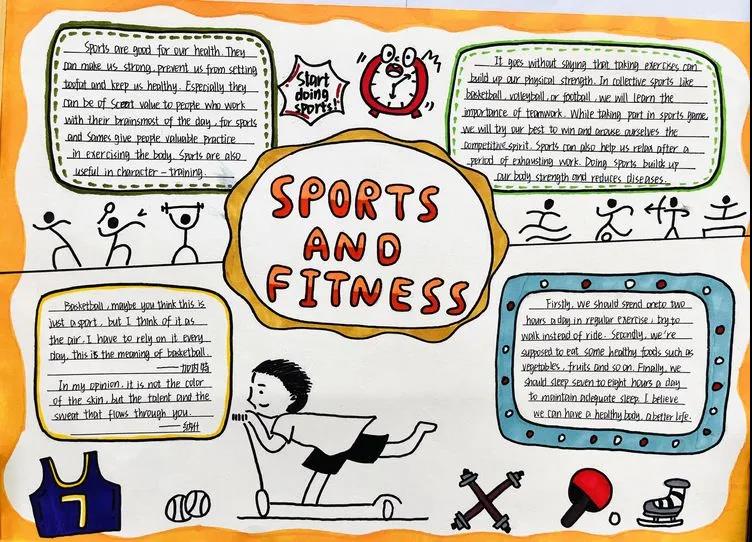 Sports are good for our health. They
can make us strong, prevent us from setting
toofat and keep us healthy. Especially they
can be of screet value to people who work
with their brainsmost of the day, for sports
and Sames give people valuable practice
in exercising the body. Sports are also
useful in character-training.
Start
doing
sports!
It goes without saying that taking exercises can
build up our physical strength. In collective sports like
basketball, volleyball, or football, we will learn the
importance of teamwork. While taking part in sports game,
we will try our best to win and arouse ourselves the
competitive spirit. Sports can also help us relax after a
period of exhausting work. Doing sports builds up
our body strength and reduces diseases.
SPORTS
AND
FITNESS
Basketball, maybe you think this is
just a sport, but I think of it as
the air, I have to rely on it every
day, this is the meaning of basketball.
——加内特
In my opinion, it is not the color
of the skin, but the talent and the
sweat that flows through you.
Firstly, we should spend oneto two
hours a day in regular exercise, try to
walk instead of ride. Secondly, we're
supposed to eat some healthy foods such as
vegetables, fruits and so on. Finally, we
should sleep seven to eight hours a day
to maintain adequate sleep. I believe
we can have a healthy body, a better life.
7